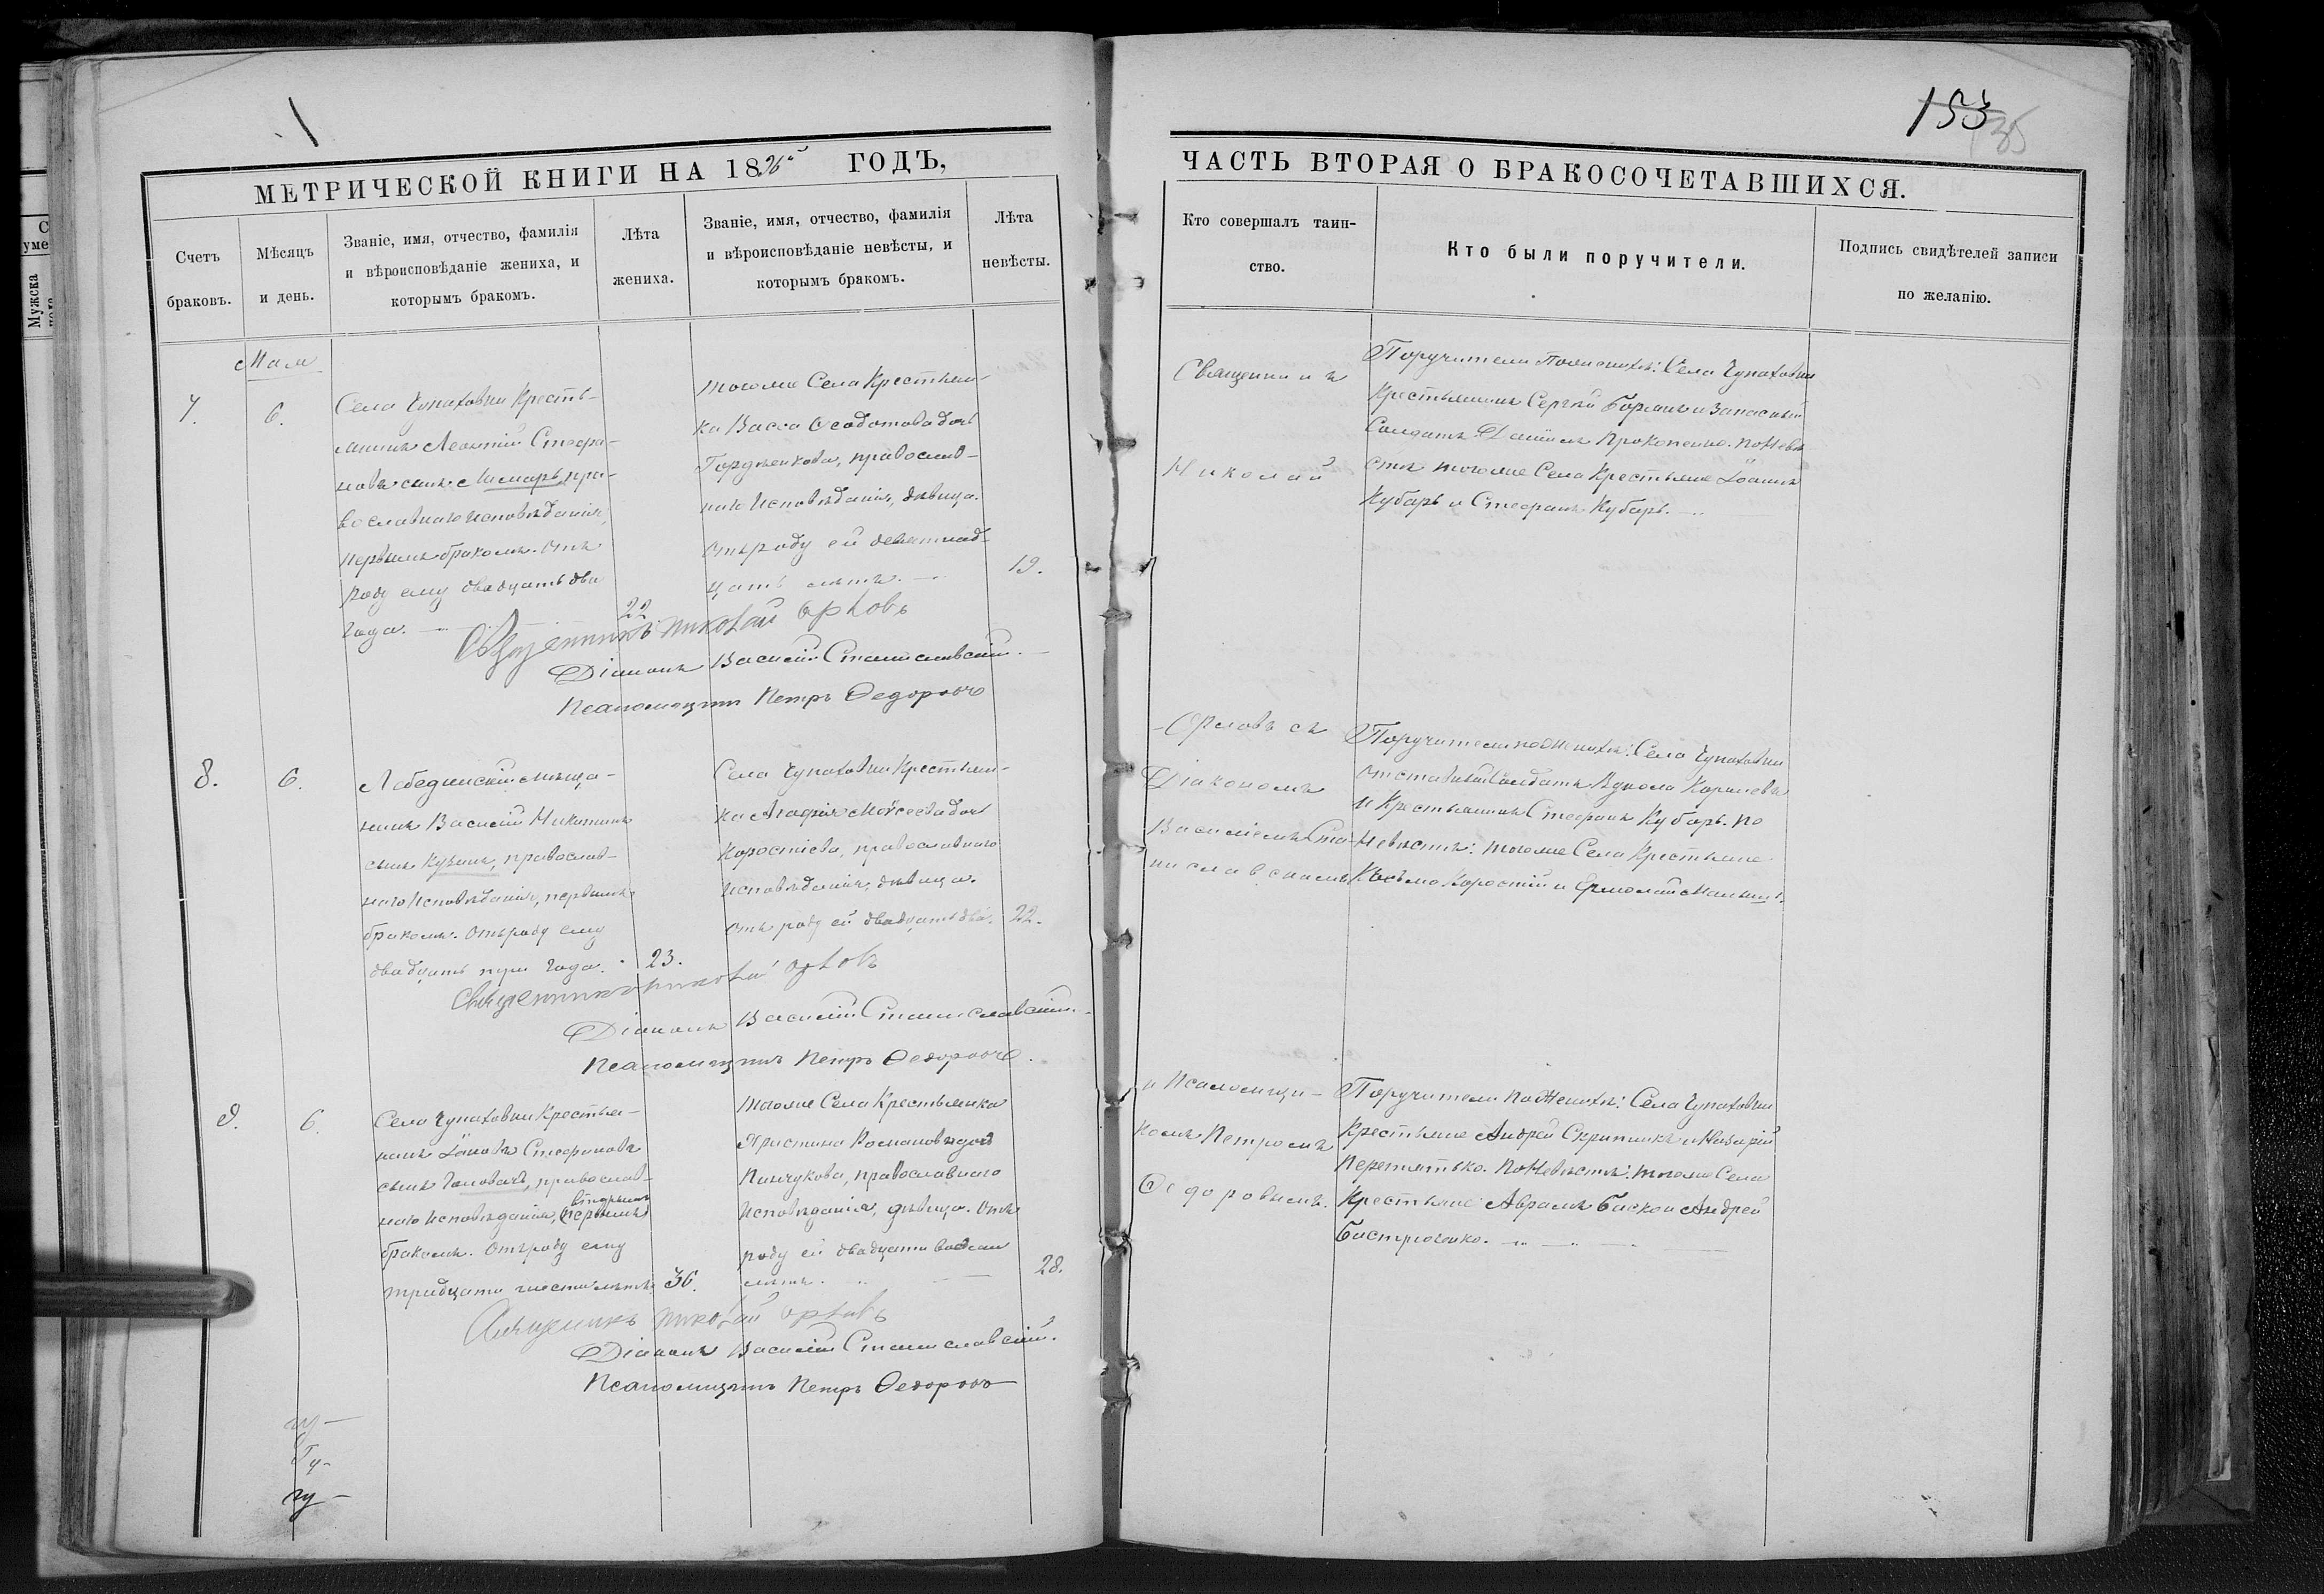 153
35
МЕТРИЧЕСКОЙ КНИГИ НА 18 ГОДЪ,
Счетъ
браковъ.
Мѣсяцъ
и день.
Званіе, имя, отчество, фамилія
и вѣроисповѣданіе жениха, и
которымъ бракомъ.
Лѣта
жениха.
Званіе, имя, отчество, фамилія
и вѣроисповѣданіе невѣсты, и
которымъ бракомъ.
Лѣта
невѣсты.
7.
6.
Села Чупаховки Кресть-
янинъ Леонтій Стефа-
новъ сынъ пра-
вославнаго исповѣданія,
первымъ бракомъ. Отъ
роду ему двадцать два
года.
22
тогоже Села Крестьян-
ка Васса Ѳеодотова дочь
Гордіенкова, православ-
наго исповѣданія, дѣвица.
Отъ роду ей девятнад-
цать лѣтъ.
19.
Священникъ Николай Орловъ
Діаконъ Василій Станиславскій.
Псаломщикъ Петръ Ѳедоровъ
8.
6.
Лебединскій мѣща-
нинъ Василій Никитинъ
сынъ Кузинъ, православ-
наго исповѣданія, первымъ
бракомъ. Отъ роду ему
двадцать три года.
23.
Села Чупаховки Крестьян-
ка Агафія Моѵсеева дочь
Коростіева, православнаго
исповѣданія, дѣвица.
Отъ роду ей двадцать два.
22.
Священникъ Николай Орловъ
Діаконъ Василій Станиславскій.
Псаломщикъ Петръ Ѳедоровъ.
9.
6.
Села Чупаховки Крестья-
нинъ Іаковъ Стефановъ
сынъ православ-
наго исповѣданія, (первымъ) вторымъ
бракомъ. Отъ роду ему
тридцать шесть лѣтъ.
36.
тогоже Села Крестьянка
Христина Романова дочь
Пинчукова, православнаго
исповѣданія, дѣвица. Отъ
роду ей двадцать восемь
лѣтъ.
28.
Священникъ Николай Орловъ
Діаконъ Василій Станиславскій.
Псаломщикъ Петръ Ѳедоровъ
ЧАСТЬ ВТОРАЯ О БРАКОСОЧЕТАВШИХСЯ.
Кто совершалъ таин-
ство.
Кто были поручители.
Подпись свидѣтелей записи
по желанію.
Священникъ
Николай
Орловъ съ
Діакономъ
Василіемъ Ста-
ниславскимъ
и Псаломщи-
комъ Петромъ
Ѳедоровымъ.
Поручители по женихѣ: Села Чупаховки
Крестьянинъ Сергѣй и запасный
Солдатъ Даніилъ Прокопенко. по Невѣ-
стѣ тогоже Села Крестьяне Іоаннъ
Кубарь и Стефанъ Кубарь.
Поручители по женихѣ: Села Чупаховки
отставный Солдатъ
и Крестьянинъ Стефанъ Кубарь. по
Невѣстѣ: тогоже Села Крестьяне
Косьма Коростій и Ермолай
Поручители по Женихѣ: Села Чупаховки
Крестьяне Андрей Скрипникъ и Назарій
Перепятько. по Невѣстѣ: тогоже Села
Крестьяне Аврамъ и Андрей
Бастрюченко.